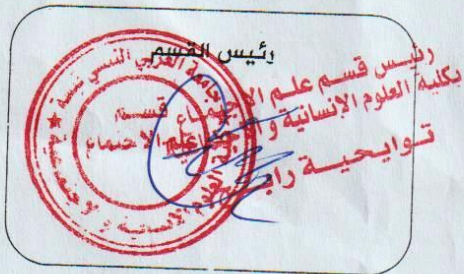 رئيس القسم
رئيس قسم علم
بكلية العلوم الإنسانية و
توايحية راب
جامعة العربي التبسي تبسة
قسم
علم الاجتماع
كلية العلوم الإنسانية و الاجتماعية